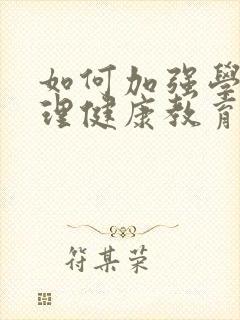 如何加强學
理健康教育
符某荣